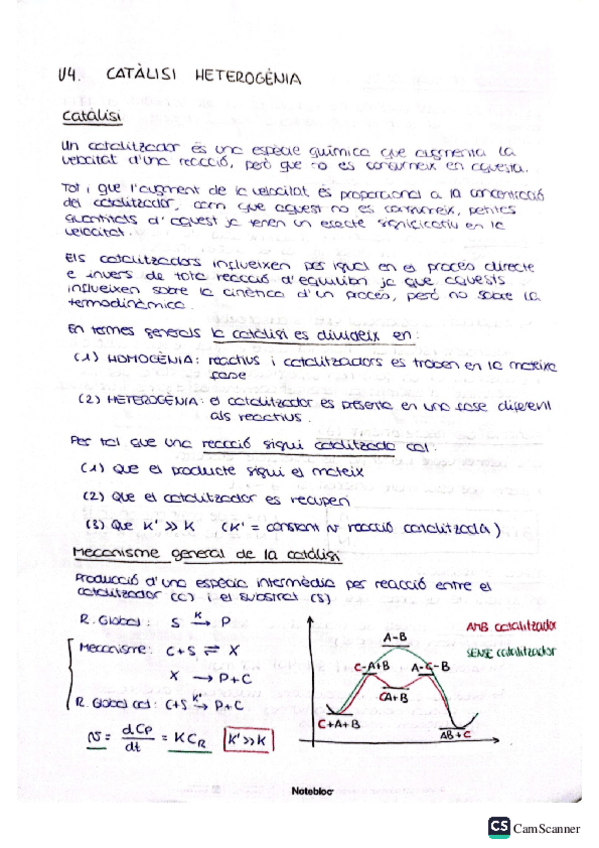 U4. CATÀLISI HETEROGÈNIA
Catàlisi
Un catalitzador és una espècie química que augmenta la
velocitat d'una reacció, però que no es consumeix en aquesta.
Tot i que l'augment de la velocitat és proporcional a la concentració
del catalitzador, com que aquest no es consumeix, petites
quantitats d'aquest ja tenen un efecte significatiu en la
velocitat.
Els catalitzadors influeixen per igual en el procés directe
e invers de tota reacció d'equilibri ja que aquests
influeixen sobre la cinètica d'un procés, però no sobre la
termodinàmica.
En termes generals la catàlisi es divideix en:
(1) HOMOGÈNIA: reactius i catalitzadors es troben en la mateixa
fase
(2) HETEROGÈNIA: el catalitzador es presenta en una fase diferent
als reactius.
Per tal que una reacció sigui catalitzada cal:
(1) Que el producte sigui el mateix
(2) Que el catalitzador es recuperi
(3) Que K' >> K (K' = constant v reacció catalitzada)
Mecanisme general de la catàlisi
Producció d'una espècie intermèdia per reacció entre el
catalitzador (C) i el substrat (S)
R. Global: S K→ P
Mecanisme: C+S ⇌ X
X → P+C
R. Global cat: C+S K'→ P+C
v = dCp/dt = K CR K'>>K
AMB catalitzador
SENSE catalitzador
A-B
C-A+B A-C-B
CA+B
C+A+B
AB+C
Notebloc
CS CamScanner